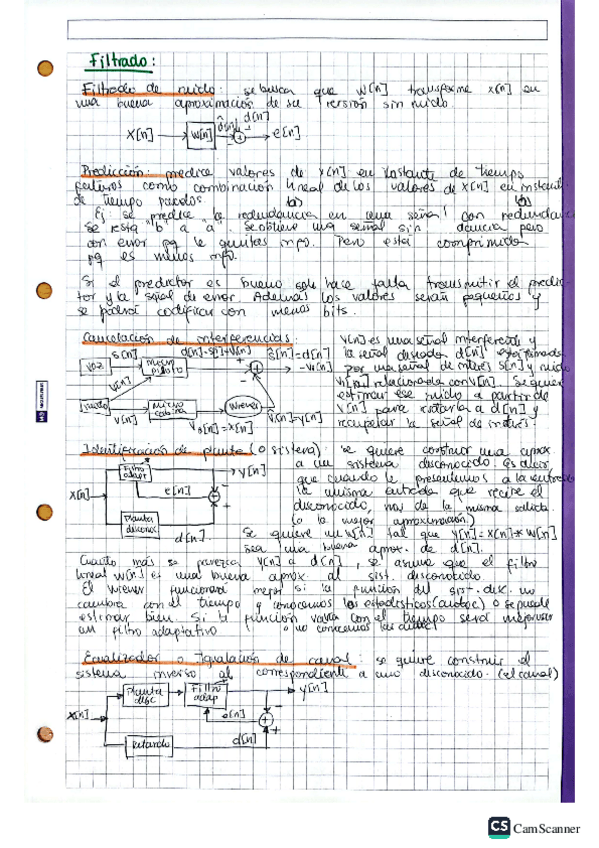 Filtrado:
Filtrado de ruido: se busca que w[n] transforme x[n] en
una buena aproximación de su versión sin ruido.
d[n]
x[n] w[n] d̂[n] + e[n]
Predicción: predice valores de x[n] en instante de tiempo
futuros como combinación lineal de los valores de x[n] en instant
de tiempo pasados (a) (b)
Ej: se predice la redundancia en una señal con redundanc
se resta "b" a "a". Se obtiene una señal sin dancia pero
con error pq le quitas info. Pero está comprimida
pq es menos info.
Si el predictor es bueno solo hace falta transmitir el predic
tor y la señal de error. Además los valores serán pequeños y
se podrá codificar con menos bits.
Cancelación de interferencias: v[n] es una señal interferente y
s[n] d[n]=s[n]+v₁[n] ŝ[n]=d[n] la señal deseada d[n] está formada
voz micro piloto + - v̂₁[n] por una señal de interés s[n] y ruido
v[n] v₁[n] relacionada con v[n]. Se quiere
ruido micro cabina Wiener estimar ese ruido a partir de
v[n] v₂[n]=x[n] v̂₁[n]=y[n] v[n] para restarla a d[n] y
recuperar la señal de interés.
Identificación de planta (o sistema): se quiere construir una aprox.
Filtro adapt y[n] a un sistema desconocido: es decir
x[n] e[n] - que cuando le presentamos a la entrada
la misma entrada que recibe el
Planta desconoc + desconocido, nos de la misma salida
d[n] (o la mejor aproximación)
Se quiere un w[n] tal que y[n]=x[n]*w[n]
sea una buena aprox. de d[n].
Cuanto más se parezca y[n] a d[n], se asume que el filtro
lineal w[n] es una buena aprox. al sist. desconocido.
El Wiener funcionará mejor si la función del sist. des. no
cambia con el tiempo y conocemos las estadísticas (autoc.) o se puede
estimar bien. Si la función varía con el tiempo será mejor usar
un filtro adaptativo o no conocemos las autoc
Ecualizador o Igualación de canal: se quiere construir el
sistema inverso al correspondiente a uno desconocido. (el canal)
Planta desc Filtro adap y[n]
x[n] e[n] - +
Retardo d[n] +
CS CamScanner